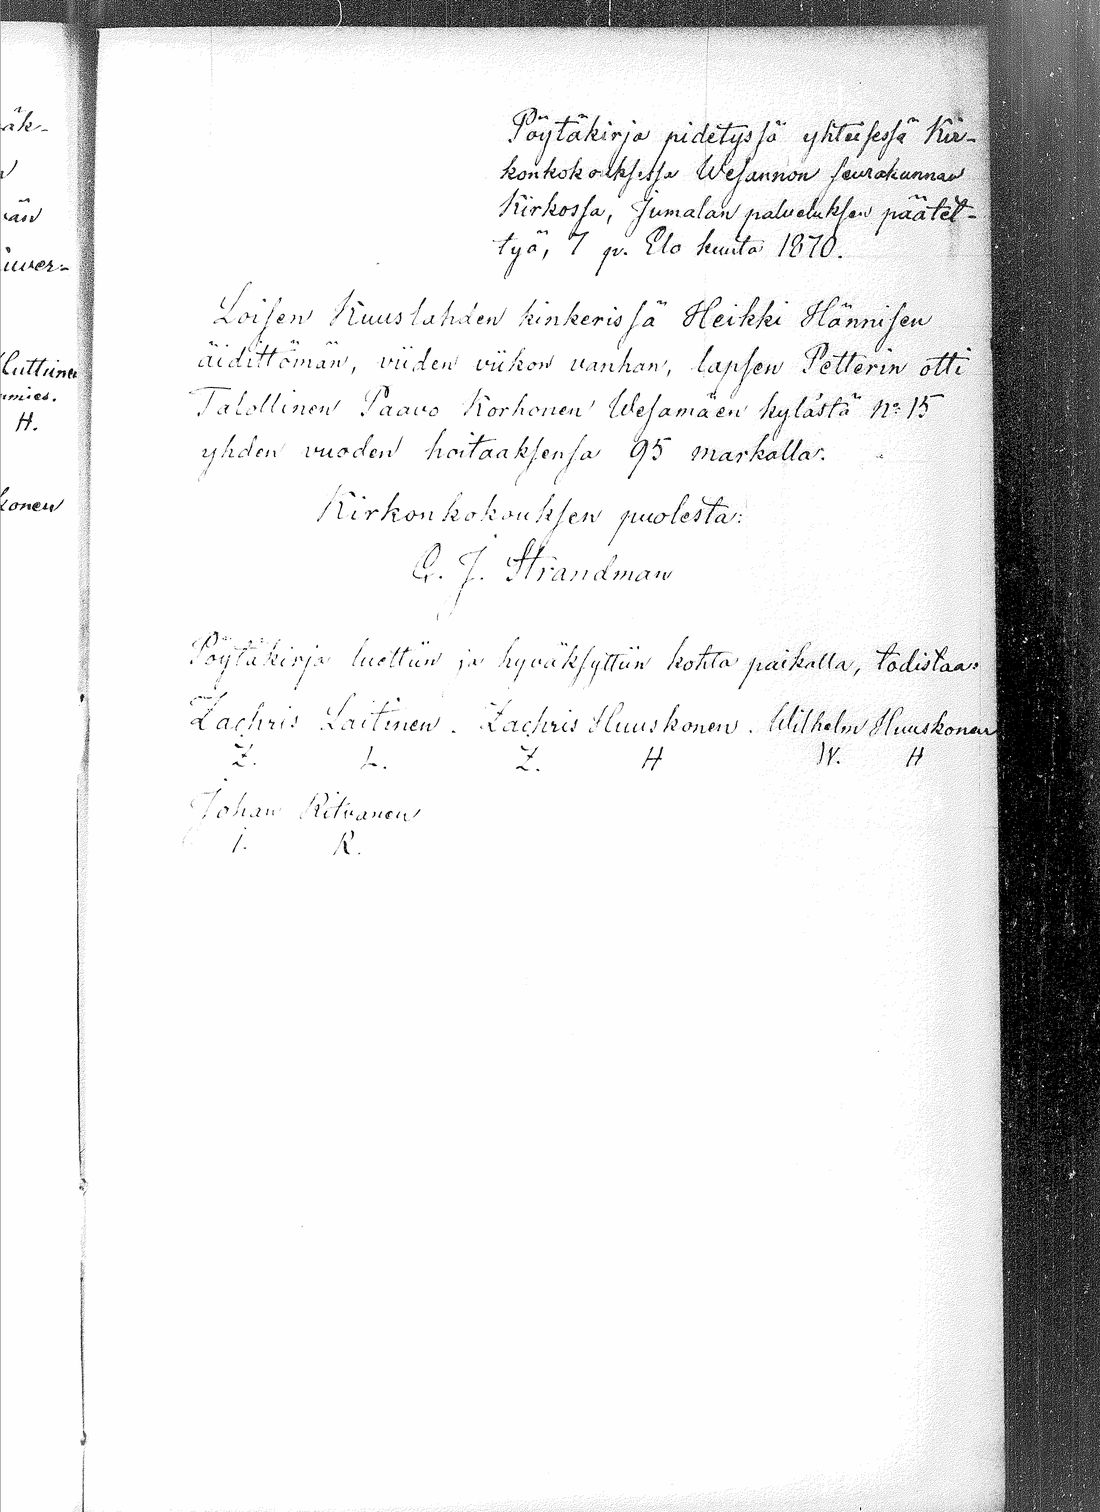 äk-
vän
uver-
Huttunen
mies.
H.
konen
Pöytäkirja pidetyssä yhteisessä Kir-
konkokouksessa Wesannon seurakunnan
Kirkossa, Jumalan palveluksen päätet-
tyä, 7 p. Elo kuuta 1870.
Loisen Kuuslahden kinkerissä Heikki Hännisen
äidittömän, viiden viikon vanhan, lapsen Petterin otti
Talollinen Paavo Korhonen Wesamäen kylästä No 15
yhden vuoden hoitaaksensa 95 markalla.
Kirkonkokouksen puolesta:
C. J. Strandman
Pöytäkirja luettiin ja hyväksyttiin kohta paikalla, todistaa:
Zachris Laitinen. Zachris Huuskonen. Wilhelm Huuskonen
Z. L. Z. H W. H
Johan Ritvanen
J. R.